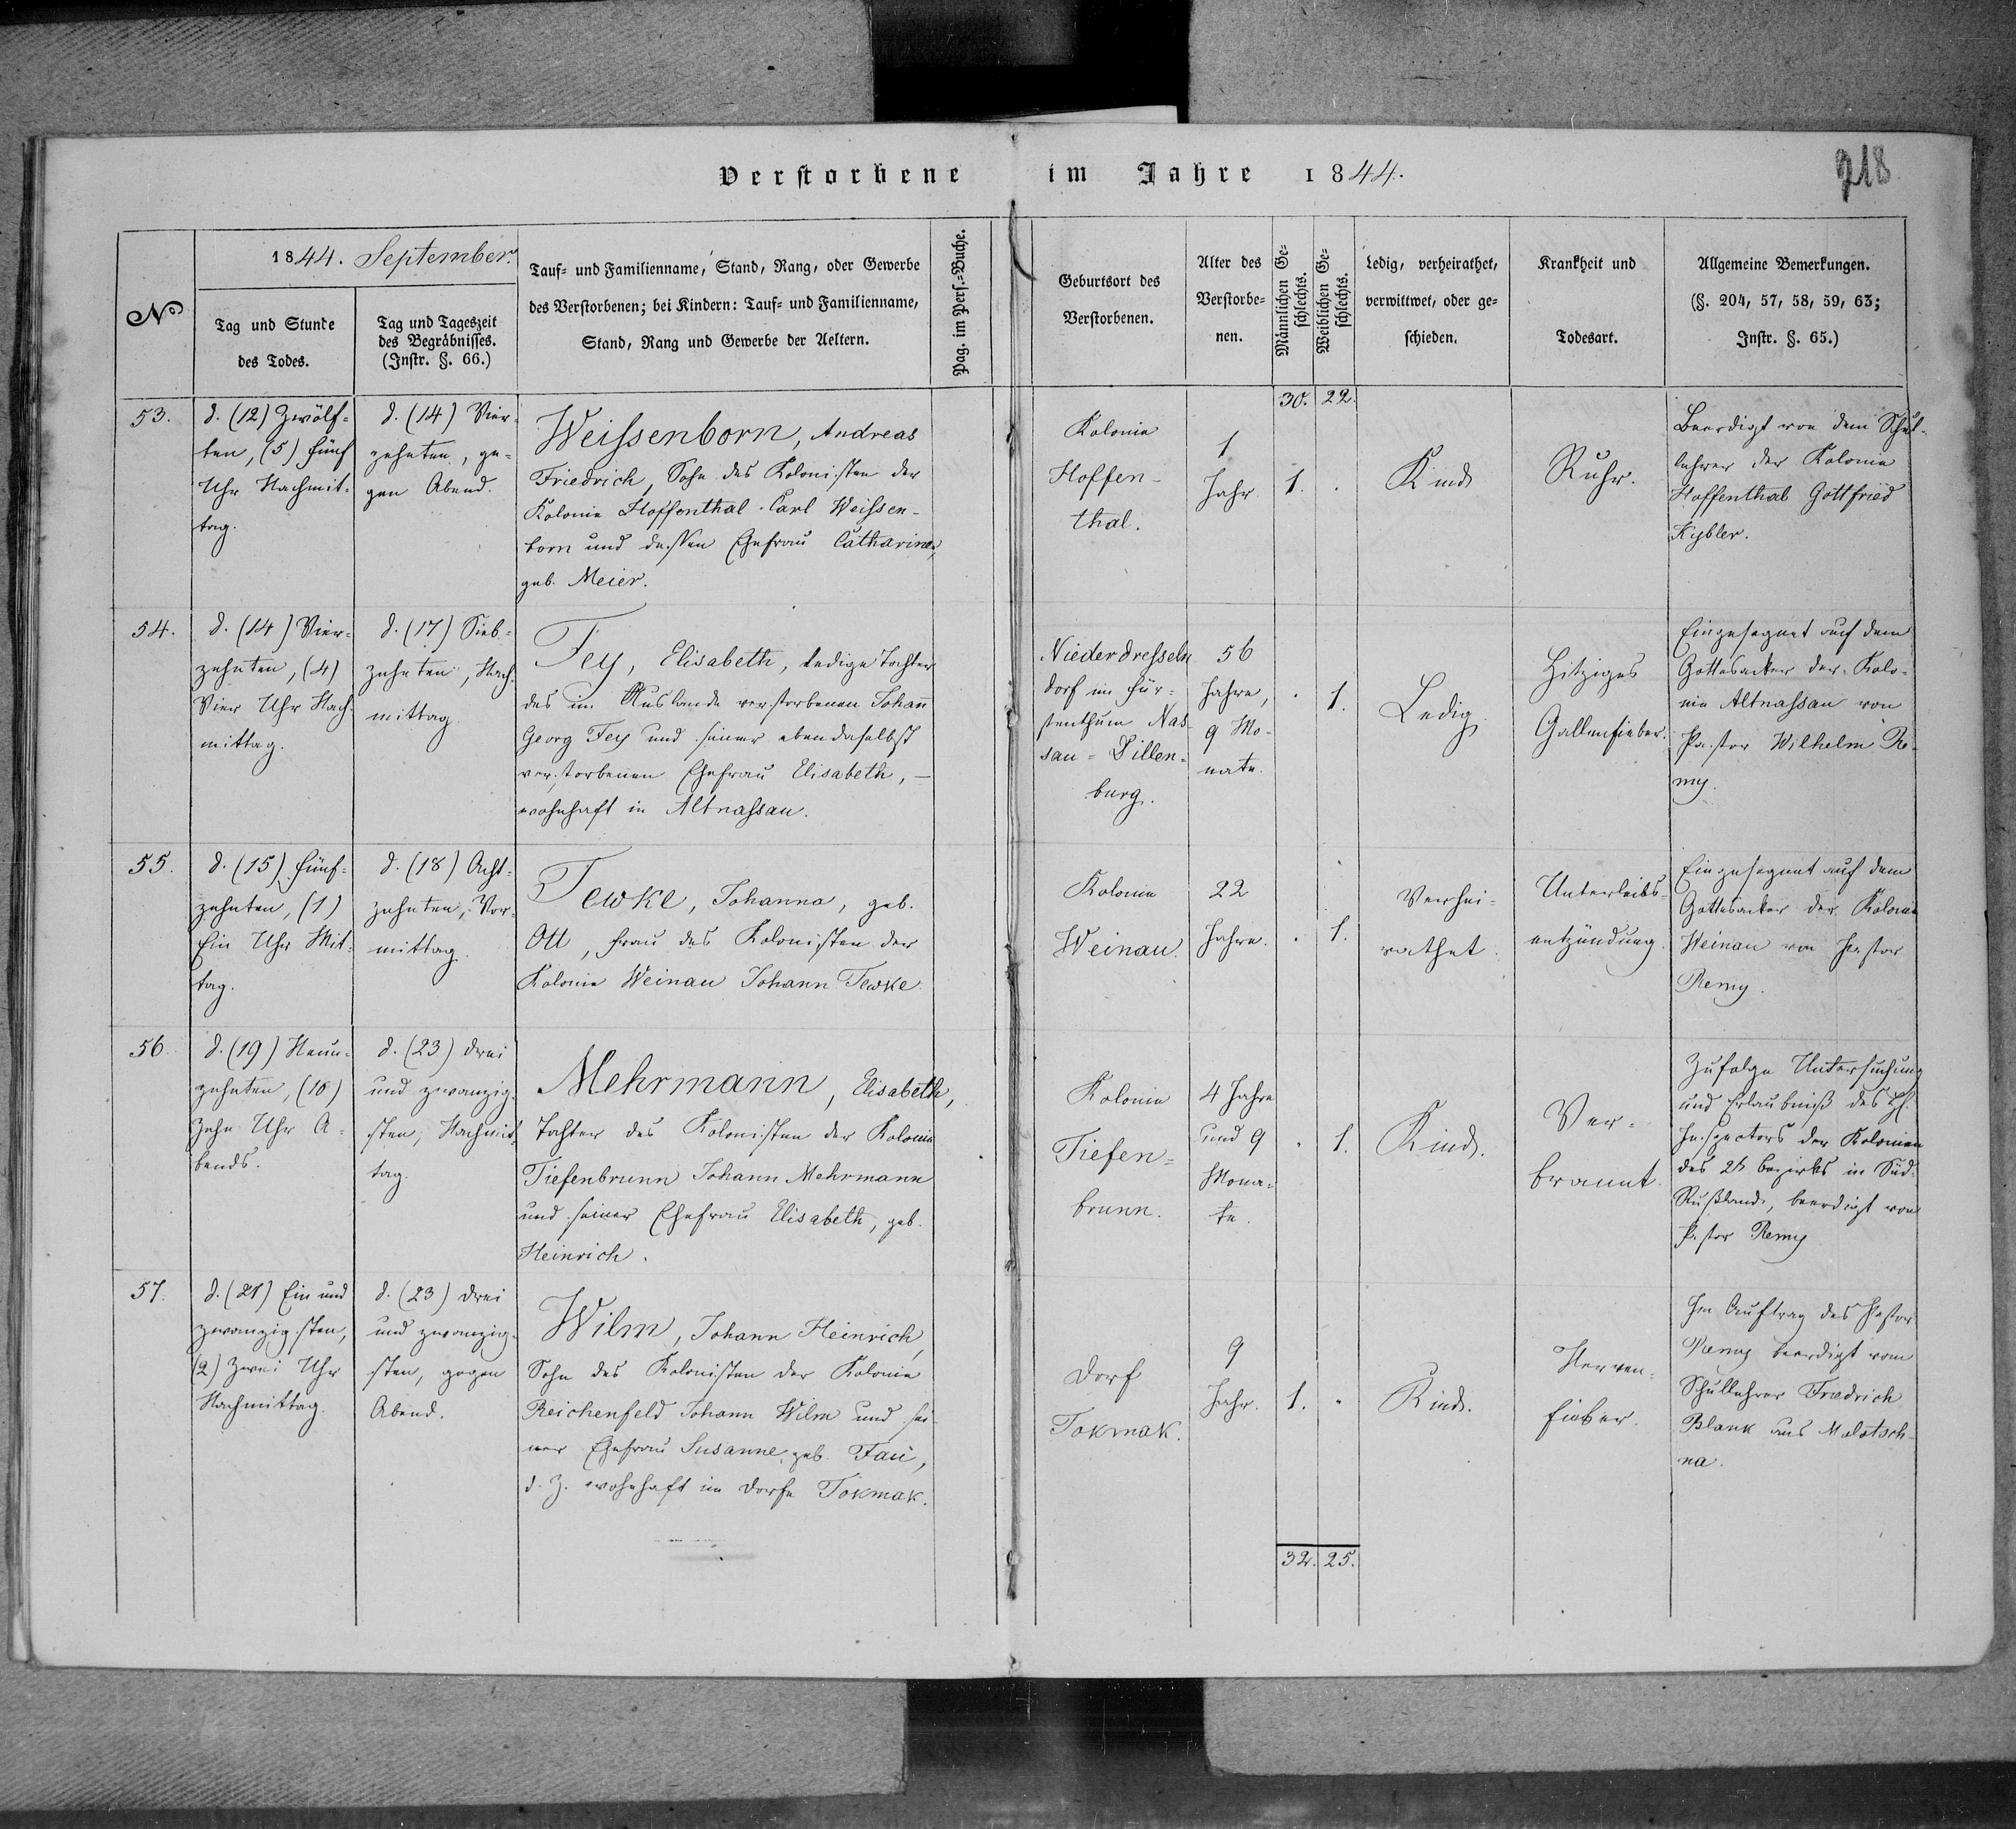 Verstorbene im Jahre 1844.
218
No
1844. September.
Tag und Stunde
des Todes.
Tag und Tageszeit
des Begräbnisses.
(Instr. §. 66.)
Tauf- und Familienname, Stand, Rang, oder Gewerbe
des Verstorbenen; bei Kindern: Tauf- und Familienname,
Stand, Rang und Gewerbe der Aeltern.
Pag. im Pers.-Buche.
Geburtsort des
Verstorbenen.
Alter des
Verstorbe-
nen.
Männlichen Ge-
schlechts.
Weiblichen Ge-
schlechts.
Ledig, verheirathet,
verwittwet, oder ge-
schieden.
Krankheit und
Todesart.
Allgemeine Bemerkungen.
(§. 204, 57, 58, 59, 63;
Instr. §. 65.)
30. 22.
53.
d. (12) Zwölf-
ten, (5) fünf
Uhr Nachmit-
tag.
d. (14) Vier-
zehnten, ge-
gen Abend.
Weissenborn, Andreas
Friedrich, Sohn des Kolonisten der
Kolonie Hoffenthal Carl Weissen-
born und dessen Ehefrau Catharine,
geb. Meier.
Kolonie
Hoffen-
thal.
1
Jahr
1.
Kind
Ruhr.
Beerdigt von dem Schul-
lehrer der Kolonie
Hoffenthal Gottfried
Kybler.
54.
d. (14) Vier-
zehnten, (4)
Vier Uhr Nach-
mittag.
d. (17) Sieb-
zehnten, Nach-
mittag.
Fey, Elisabeth, ledige Tochter
des im Auslande verstorbenen Johann
Georg Fey und seiner ebendaselbst
verstorbenen Ehefrau Elisabeth, –
wohnhaft in Altnassau.
Niederdresseln
dorf im Für-
stenthum Nas-
sau-Dillen-
burg.
56
Jahre,
9 Mo-
nate.
1.
Ledig.
Hitziges
Gallenfieber.
Eingesegnet auf dem
Gottesacker der Kolo-
nie Altnassau von
Pastor Wilhelm Re-
my.
55.
d. (15) fünf-
zehnten, (1)
Ein Uhr Mit-
tag.
d. (18) Acht-
zehnten, Vor-
mittag.
Tewke, Johanna, geb.
Ott, Frau des Kolonisten der
Kolonie Weinau Johann Tewke.
Kolonie
Weinau.
22
Jahre.
1.
Verhei-
rathet.
Unterleibs-
entzündung.
Eingesegnet auf dem
Gottesacker der Kolonie
Weinau von Pastor
Remy.
56.
d. (19) Neun-
zehnten, (10)
Zehn Uhr A-
bends.
d. (23) drei
und zwanzig-
sten, Nachmit-
tag.
Mehrmann, Elisabeth,
Tochter des Kolonisten der Kolonie
Tiefenbrunn Johann Mehrmann
und seiner Ehefrau Elisabeth, geb.
Heinrich.
Kolonie
Tiefen-
brunn.
4 Jahre
und 9
Mona-
te.
1.
Kind.
Ver-
brannt.
Zufolge Untersuchung
und Erlaubniß des H.
Inspectors der Kolonien
des 2t Bezirks in Süd-
Rußland, beerdigt von
Pastor Remy
57.
d. (21) Ein und
zwanzigsten,
(2) Zwei Uhr
Nachmittag.
d. (23) drei
und zwanzig-
sten, gegen
Abend.
Wilm, Johann Heinrich,
Sohn des Kolonisten der Kolonie
Reichenfeld Johann Wilm und sei-
ner Ehefrau Susanne, geb. Fau,
d. Z. wohnhaft im Dorfe Tokmak.
Dorf
Tokmak.
9
Jahr.
1.
Kind.
Nerven-
fieber.
Im Auftrag des Pastor
Remy beerdigt vom
Schullehrer Friedrich
Blank aus Molotsch-
na.
32. 25.